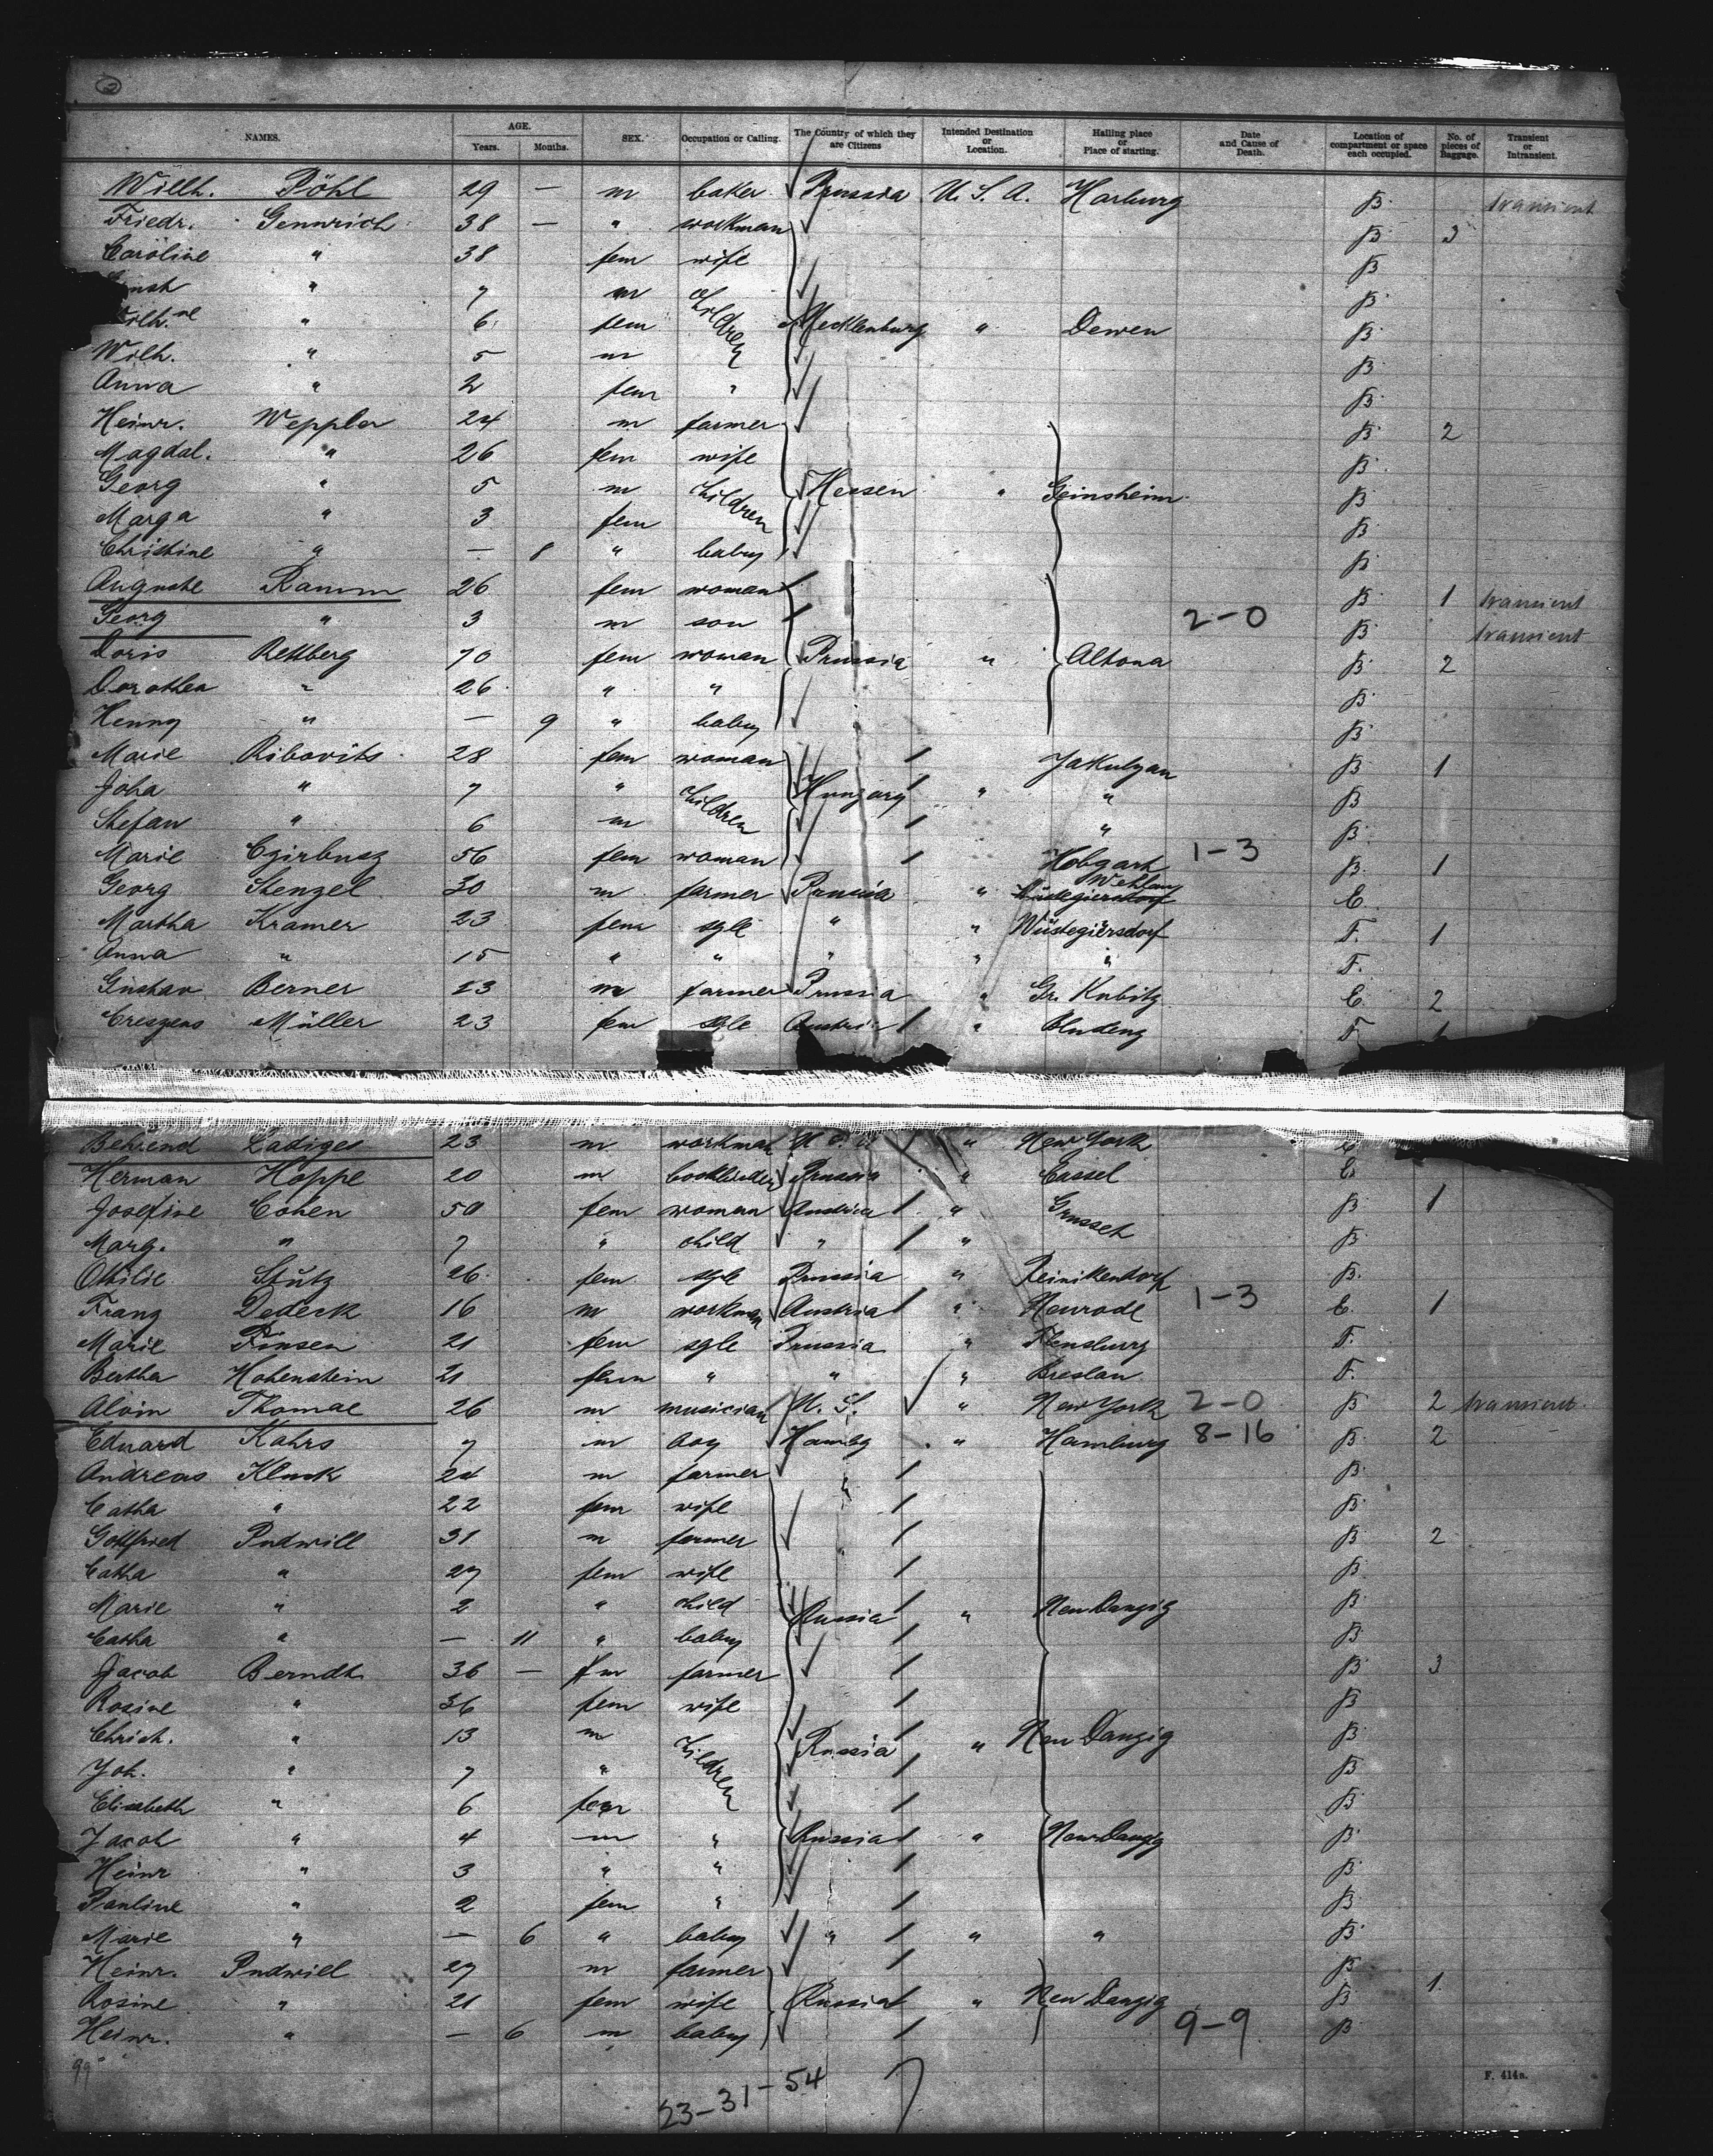 2
NAMES. AGE. Years. Months. SEX. Occupation or Calling. The Country of which they are Citizens Intended Destination or Location. Hailing place or Place of starting. Date and Cause of Death. Location of compartment or space each occupied. No. of pieces of Baggage. Transient or Intransient.
Willh. Pöhl 29 — m baker Prussia U. S. A. Harburg B. transient
Friedr. Gennrich 38 — " workman B 3
Caroline " 38 fem wife B
" 7 m children B
" 6 fem Mecklenburg " Dewen B
Wilh. " 5 m B
Anna " 2 fem " B
Heinr. Weppler 24 m farmer B 2
Magdal. " 26 fem wife B
Georg " 5 m children Hessen " Geinsheim B
Marga " 3 fem B
Christine " — 8 " baby B
Auguste Ramm 26 fem woman B 1 transient
Georg " 3 m son 2-0 B transient
Doris Rettberg 70 fem woman Prussia " Altona B 2
Dorothea " 26 " " B
Henny " — 9 " baby B
Marie Ribovits 28 fem woman Jakulyan B 1
Joha " 7 " children Hungary " " B
Stefan " 6 m " B
Marie Czirbusz 56 fem woman Hobgart 1-3 B 1
Georg Stenzel 30 m farmer Prussia " Wehlau E
Martha Kramer 23 fem sgle " " Wüstegiersdorf F. 1
Anna " 15 " " " " " F.
Gustav Berner 23 m farmer Prussia " Gr. Kubitz E 2
Creszens Müller 23 fem sgle Austria " Bludenz F 1
Behrend Ladiges 23 m workman U. S. " New York E
Herman Hoppe 20 m bookbinder Prussia " Cassel E
Josefine Cohen 50 fem woman Austria " B 1
Marg. " 7 " child " " B
Ottilie Stutz 26 fem sgle Prussia " Reinikendorf B.
Franz Dedeck 16 m workman Austria " Neurode 1-3 E. 1
Marie Finsen 21 fem sgle Prussia " Flensburg F.
Bertha Hohenstein 21 fem " " " Breslau F.
Alvin Thomae 26 m musician U. S. " New York 2-0 B 2 transient
Eduard Kahrs 7 m boy Hambg " Hamburg 8-16 B 2
Andreas Kluck 24 m farmer B
Catha " 22 fem wife B
Gottfried Pudwill 31 m farmer B 2
Catha " 27 fem wife B
Marie " 2 " child Russia " Neu Danzig B
Catha " — 11 " baby B
Jacob Berndt 36 — m farmer B 3
Rosine " 36 fem wife B
Christ. " 13 m children Russia " Neu Danzig B
Joh. " 7 " B
Elisabeth " 6 fem B
Jacob " 4 m " Russia " Neu Danzig B
Heinr " 3 " " B
Pauline " 2 fem " B
Marie " — 6 " baby " " " B
Heinr. Pudwill 27 m farmer B
Rosine " 21 fem wife Russia " Neu Danzig B 1
Heinr. " — 6 m baby 9-9 B
99
23-31-54
F. 414a.